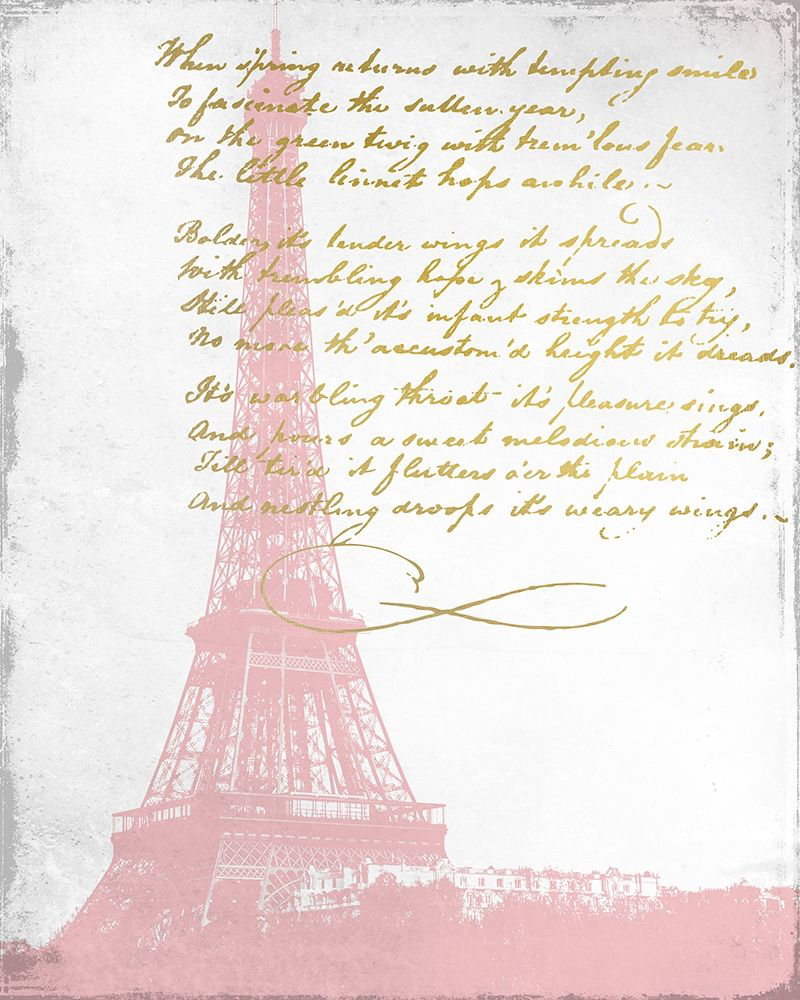 When spring returns with tempting smiles
To fascinate the sullen year,
On the green twig with trem'lous fear
The little linnet hops awhile.~
Bolder, it's tender wings it spreads
With trembling hope & skims the sky,
Still pleas'd it's infant strength to try,
No more th'accustom'd height it dreads.
It's warbling throat it's pleasure sings,
And pours a sweet melodious strain;
Till tir'd it flutters o'er the plain
And nestling droops it's weary wings.~